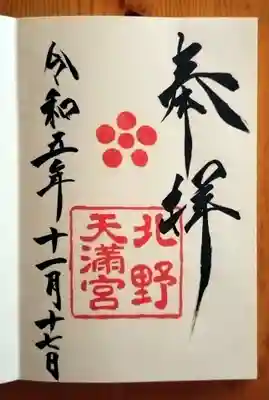 奉拝
北野
天満宮
令和五年十一月十七日